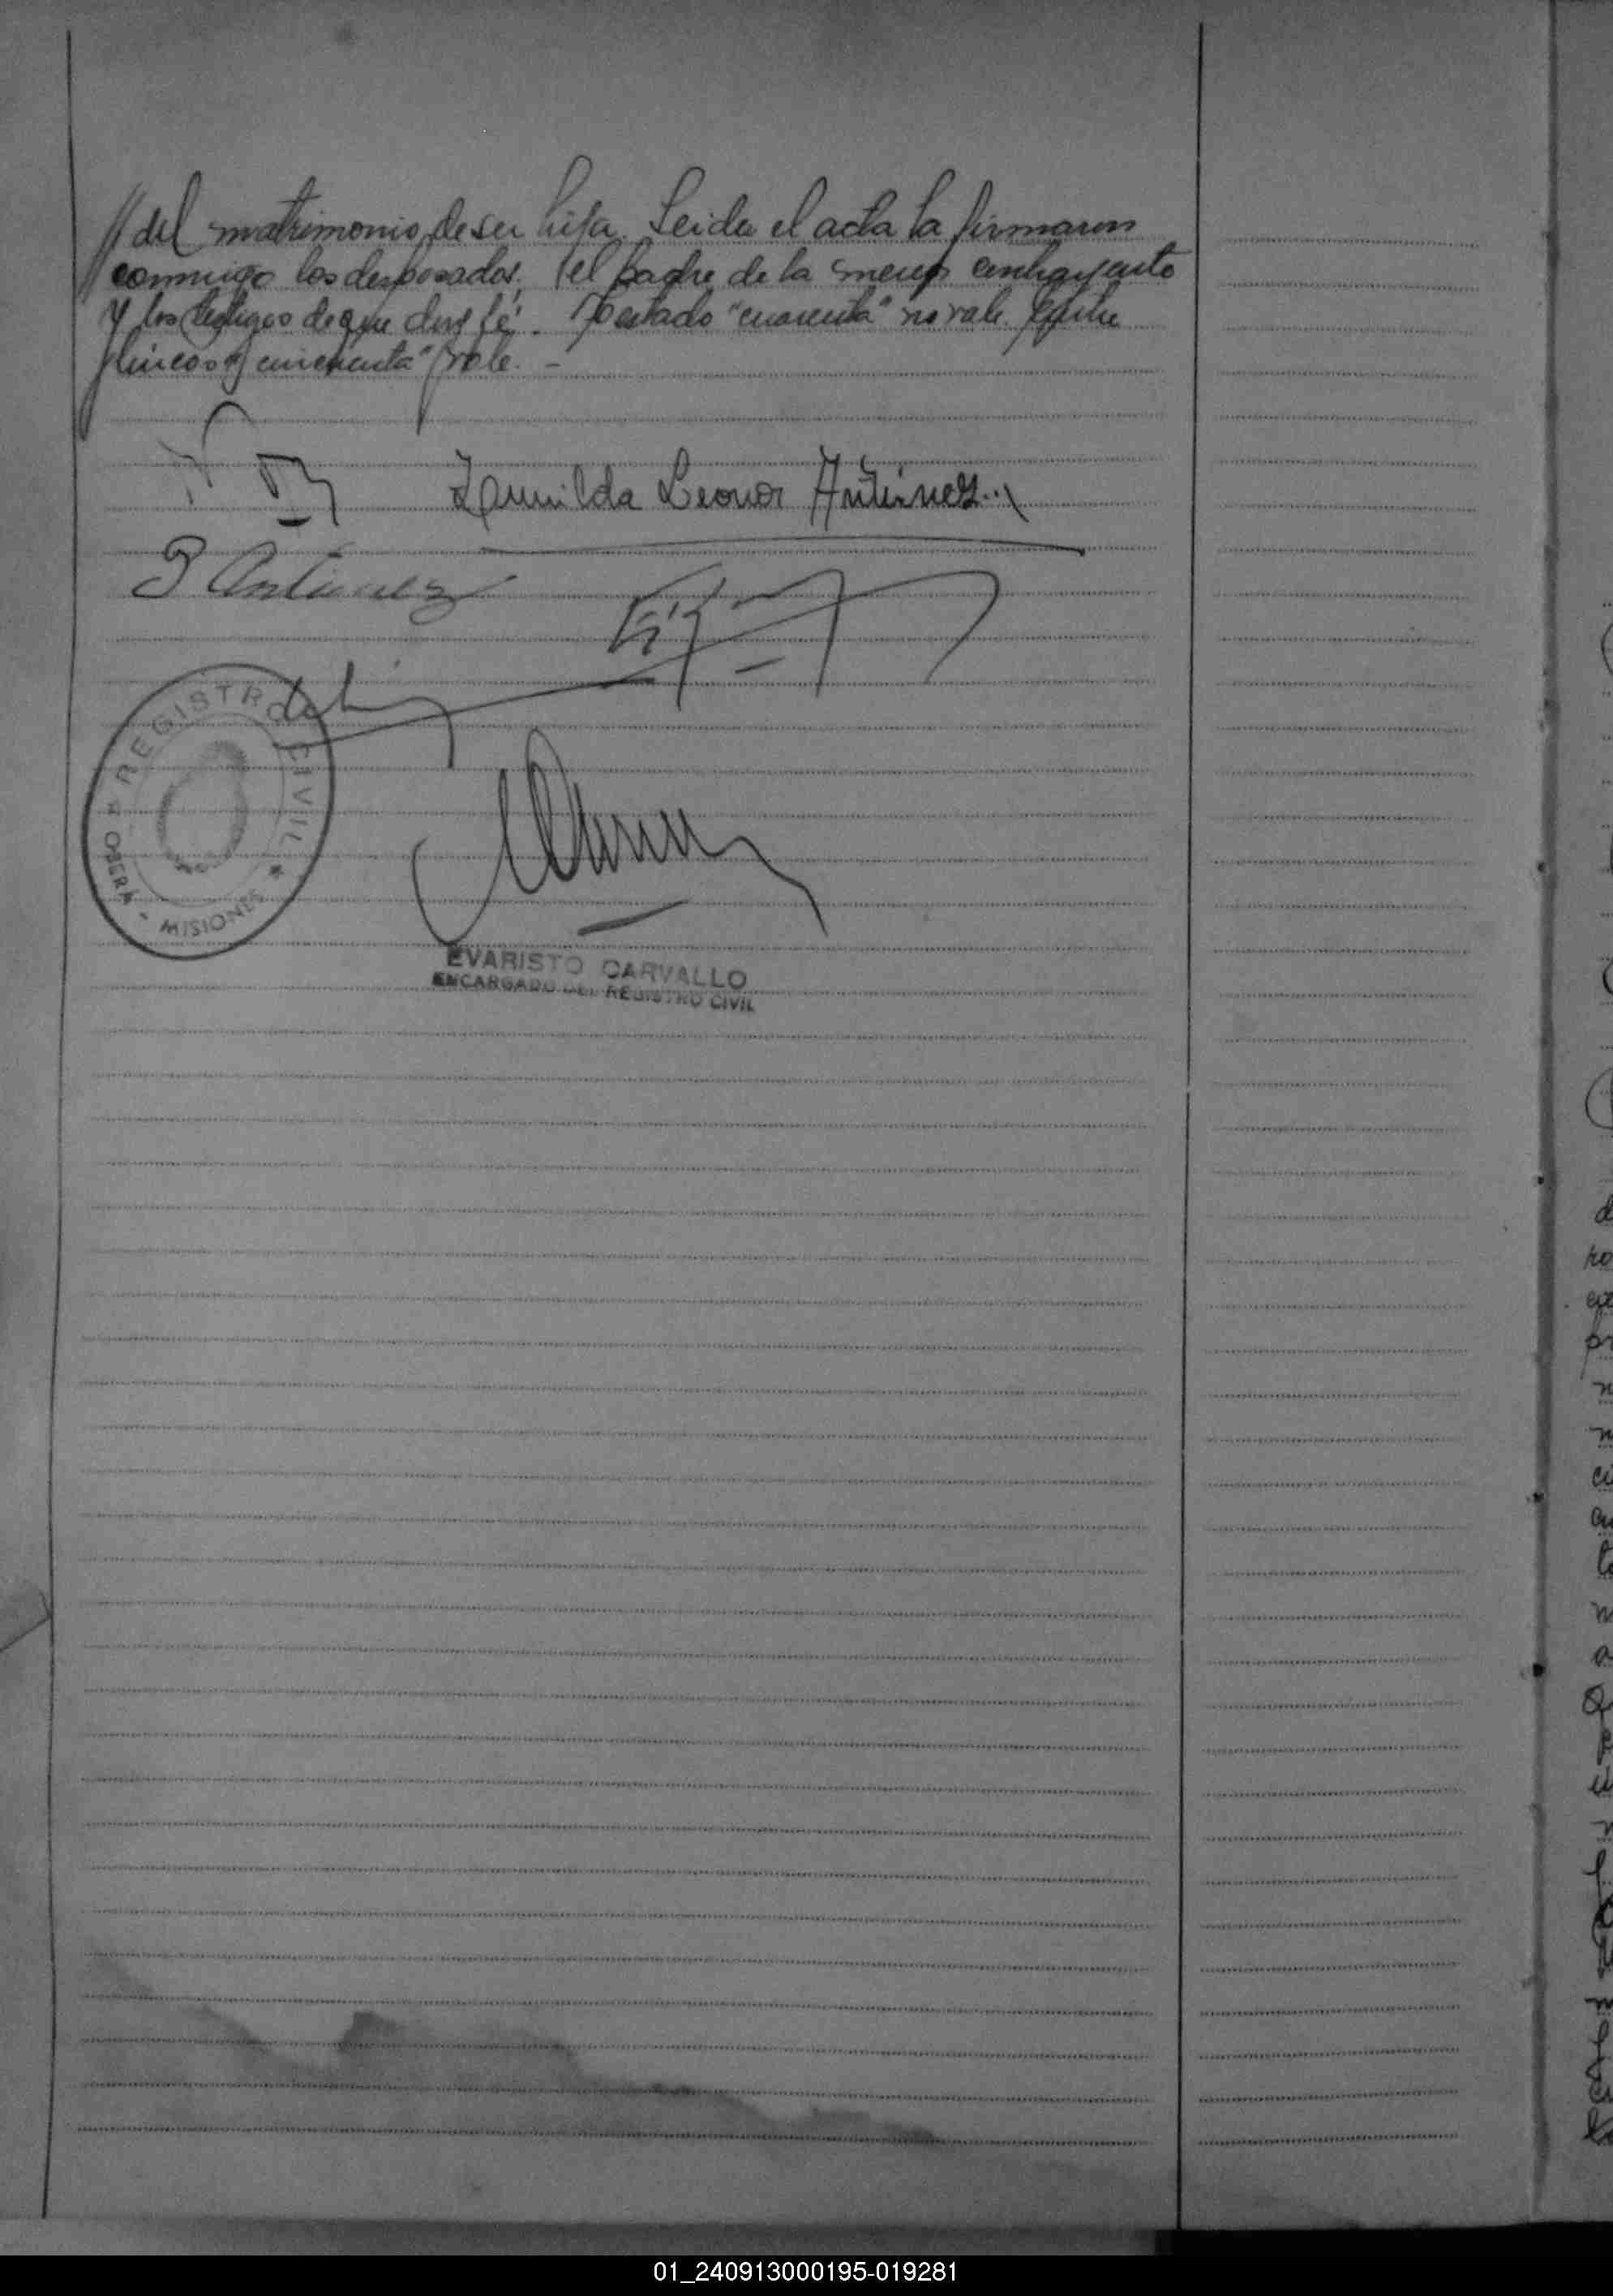 // del matrimonio de su hija. Leida el acta la firmaron
conmigo los desposados, el padre de la menor contrayente
y los testigos de que doy fé. Testado "cuarenta" no vale. Entre
lineas "cincuenta" vale. -
Leonor Antúnez
P Antunez
REGISTRO CIVIL
OBERÁ - MISIONES
EVARISTO CARVALLO
ENCARGADO DEL REGISTRO CIVIL
01_240913000195-019281